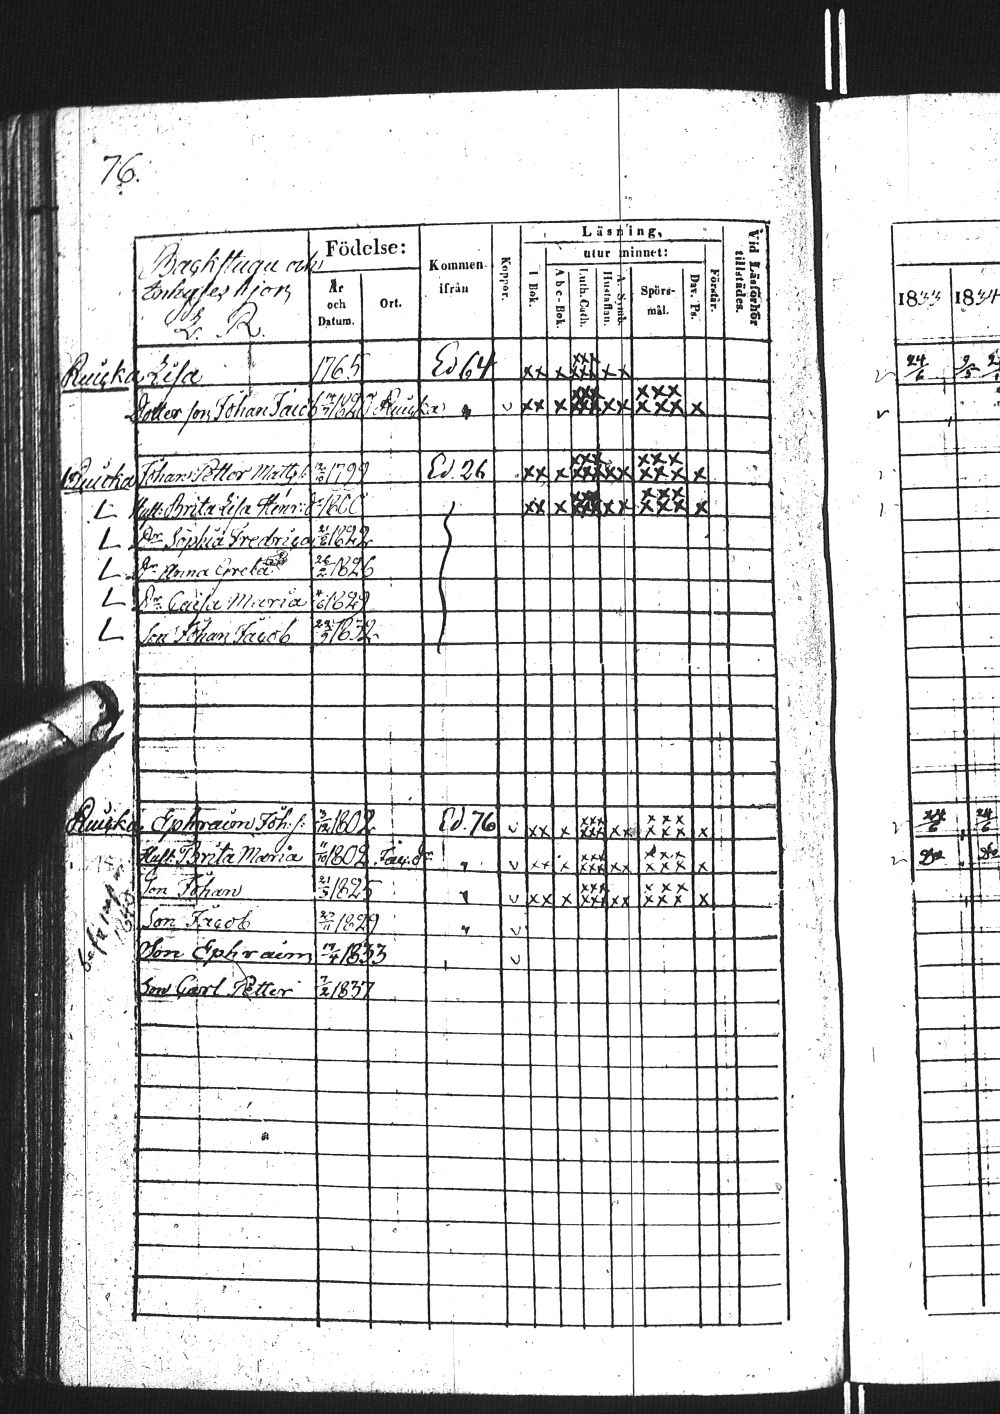 76.
Backstugu och
Inhyses hjon
L. R.
Födelse:
År och Datum.
Ort.
Kommen ifrån
Koppor.
Läsning,
utur minnet:
I Bok.
Abc-Bok.
Luth. Cath.
Hustaflan.
A. Symb.
Spörs-mål.
Dav. Ps.
Förstår.
Vid Läsförhör tillstädes.
1833 1834
Ruicka Lisa 1765 Ed 64 xx x xxx xxx x x 24/6
Dotter son Johan Jacob 1820 Ruicka " v xx x xxx xxx x x xxx xxx x
Ruicka Johan Petter Matts s. 1799 Ed. 26 xx x xxx xxx x x xxx xxx x
L Hust. Brita Lisa Henr: dr 1800 xx x xxx xxx x x xxx xxx x
L Dr Sophia Fredrica 1822
L Dr Anna Greta 26/2 1826
L Dr Caisa Maria 1829
L Son Johan Jacob 1832
Ruicka Ephraim Joh. s. 1802 Ed. 76 v xx x xxx xxx x x xxx xxx x 24/6 24/6
Hust. Brita Maria 1802 Jac. dr " v xx x xxx xxx xx xxx xxx x Do Do
Son Johan 21/3 1825 " v xx x xxx xxx xx xxx xxx x
Son Jacob 1829 " v
Son Ephraim 17/4 1833 v
Son Carl Petter 7/2 1837